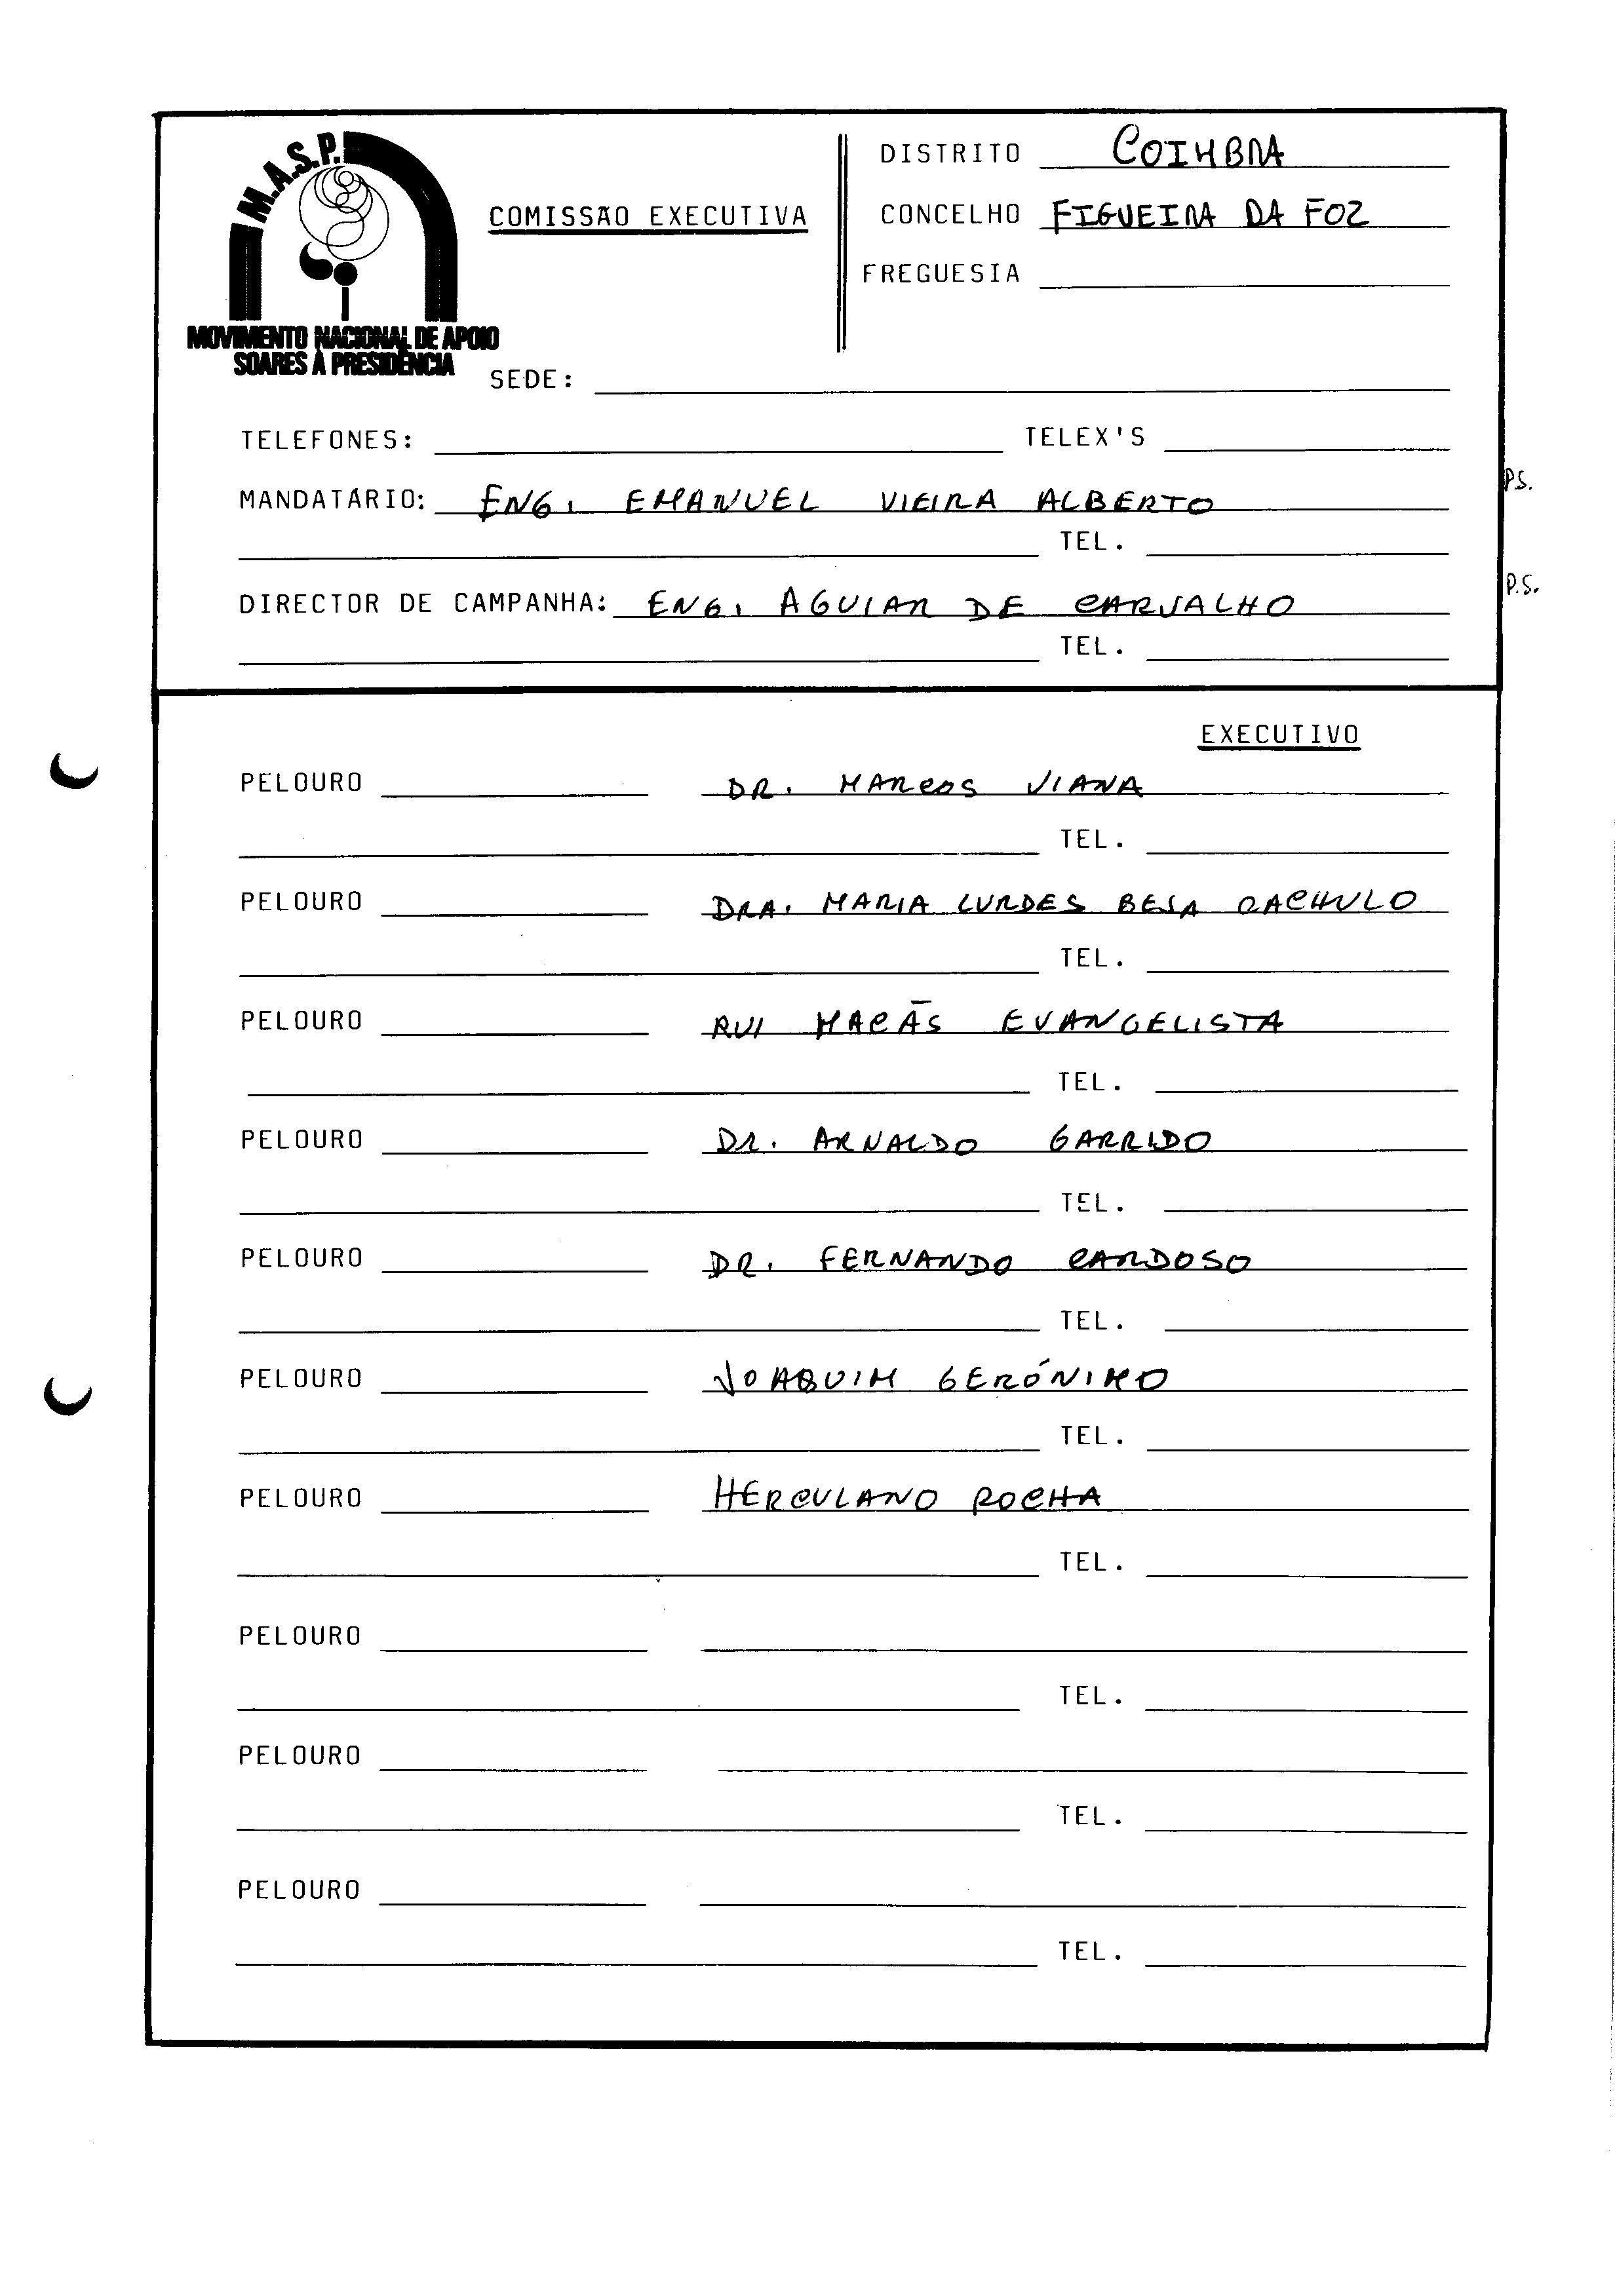 M.A.S.P.
MOVIMENTO NACIONAL DE APOIO
SOARES À PRESIDÊNCIA
COMISSÃO EXECUTIVA
DISTRITO COIMBRA
CONCELHO FIGUEIRA DA FOZ
FREGUESIA
SEDE:
TELEFONES: TELEX'S
MANDATÁRIO: ENG. EMANUEL VIEIRA ALBERTO P.S.
TEL.
DIRECTOR DE CAMPANHA: ENG. AGUIAR DE CARVALHO P.S.
TEL.
EXECUTIVO
PELOURO DR. MARCOS VIANA
TEL.
PELOURO DRA. MARIA LURDES BEJA CACHULO
TEL.
PELOURO RUI MACÃS EVANGELISTA
TEL.
PELOURO DR. ARNALDO GARRIDO
TEL.
PELOURO DR. FERNANDO CARDOSO
TEL.
PELOURO JOAQUIM GERÓNIMO
TEL.
PELOURO HERCULANO ROCHA
TEL.
PELOURO
TEL.
PELOURO
TEL.
PELOURO
TEL.